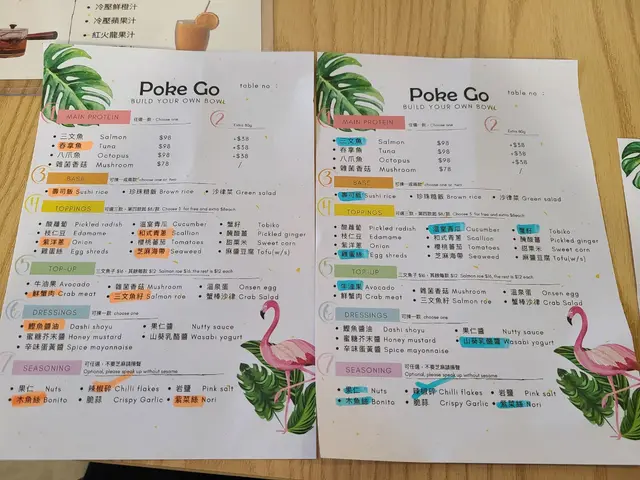 冷壓鮮橙汁
冷壓蘋果汁
紅火龍果汁
Poke Go
BUILD YOUR OWN BOWL
table no :
MAIN PROTEIN
Choose one
Extra 60g
三文魚 Salmon $98 +$38
吞拿魚 Tuna $98 +$38
八爪魚 Octopus $98 +$38
雜菌香菇 Mushroom $78
3 BASE
壽司飯 Sushi rice 珍珠糙飯 Brown rice 沙律菜 Green salad
4 TOPPINGS
酸蘿蔔 Pickled radish 溫室青瓜 Cucumber 蟹籽 Tobiko
枝仁豆 Edamame 和式青蔥 Scallion 醃酸薑 Pickled ginger
紫洋蔥 Onion 櫻桃蕃茄 Tomatoes 甜粟米 Sweet corn
雞蛋絲 Egg shreds 芝麻海帶 Seaweed 麻蓉豆腐 Tofu(w/s)
5 TOP-UP
牛油果 Avocado 雜菌香菇 Mushroom 溫泉蛋 Onsen egg
鮮蟹肉 Crab meat 三文魚籽 Salmon roe 蟹棒沙律 Crab Salad
6 DRESSINGS
可揀一款 : choose one
鰹魚醬油 Dashi shoyu 果仁醬 Nutty sauce
蜜糖芥末醬 Honey mustard 山葵乳酪醬 Wasabi yogurt
辛味蛋黃醬 Spice mayonnaise
7 SEASONING
可任選，不要芝麻請揚聲
Optional, please speak up without sesame
果仁 Nuts 辣椒碎 Chilli flakes 岩鹽 Pink salt
木魚絲 Bonito 脆蒜 Crispy Garlic 紫菜絲 Nori
Poke Go
BUILD YOUR OWN BOWL
table no :
MAIN PROTEIN
Choose one
Extra 60g
三文魚 Salmon $98 +$38
吞拿魚 Tuna $98 +$38
八爪魚 Octopus $98 +$38
雜菌香菇 Mushroom $78 /
3 BASE
壽司飯 Sushi rice 珍珠糙飯 Brown rice 沙律菜 Green salad
4 TOPPINGS
酸蘿蔔 Pickled radish 溫室青瓜 Cucumber 蟹籽 Tobiko
枝仁豆 Edamame 和式青蔥 Scallion 醃酸薑 Pickled ginger
紫洋蔥 Onion 櫻桃蕃茄 Tomatoes 甜粟米 Sweet corn
雞蛋絲 Egg shreds 芝麻海帶 Seaweed 麻蓉豆腐 Tofu(w/s)
5 TOP-UP
牛油果 Avocado 雜菌香菇 Mushroom 溫泉蛋 Onsen egg
鮮蟹肉 Crab meat 三文魚籽 Salmon roe 蟹棒沙律 Crab Salad
6 DRESSINGS
可揀一款 : choose one
鰹魚醬油 Dashi shoyu 果仁醬 Nutty sauce
蜜糖芥末醬 Honey mustard 山葵乳酪醬 Wasabi yogurt
辛味蛋黃醬 Spice mayonnaise
7 SEASONING
可任選，不要芝麻請揚聲
Optional, please speak up without sesame
果仁 Nuts 辣椒碎 Chilli flakes 岩鹽 Pink salt
木魚絲 Bonito 脆蒜 Crispy Garlic 紫菜絲 Nori